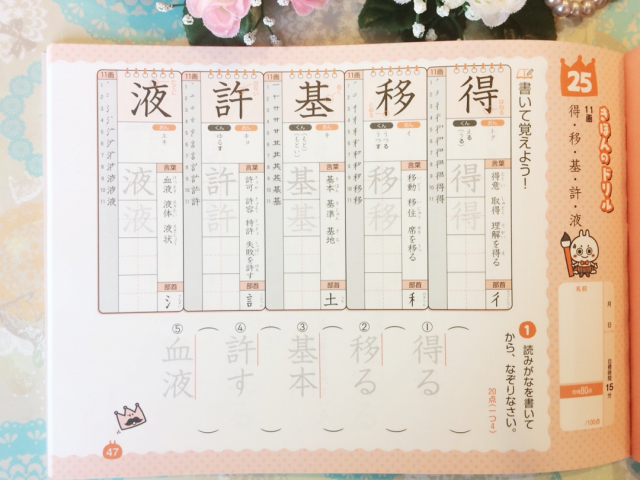 25
きほんのドリル
11画
得・移・基・許・液
名前
月 日
目標時間 15分
合格80点
/100点
書いて覚えよう！
11画
得
おん
トク
くん
える
(うる)
言葉
得意 取得 理解を得る
得得
部首
彳
11画
移
おん
イ
くん
うつる
うつす
言葉
移動 移住 席を移る
移移
部首
禾
11画
基
おん
キ
くん
(もと)
(もとい)
言葉
基本 基準 基地
基基
部首
土
11画
許
おん
キョ
くん
ゆるす
言葉
許可 許容 特許 失敗を許す
許許
部首
訁
11画
液
おん
エキ
言葉
血液 液体 液状
液液
部首
氵
1 読みがなを書いて
から、なぞりなさい。
20点(一つ4)
① 得る
② 移る
③ 基本
④ 許す
⑤ 血液
47